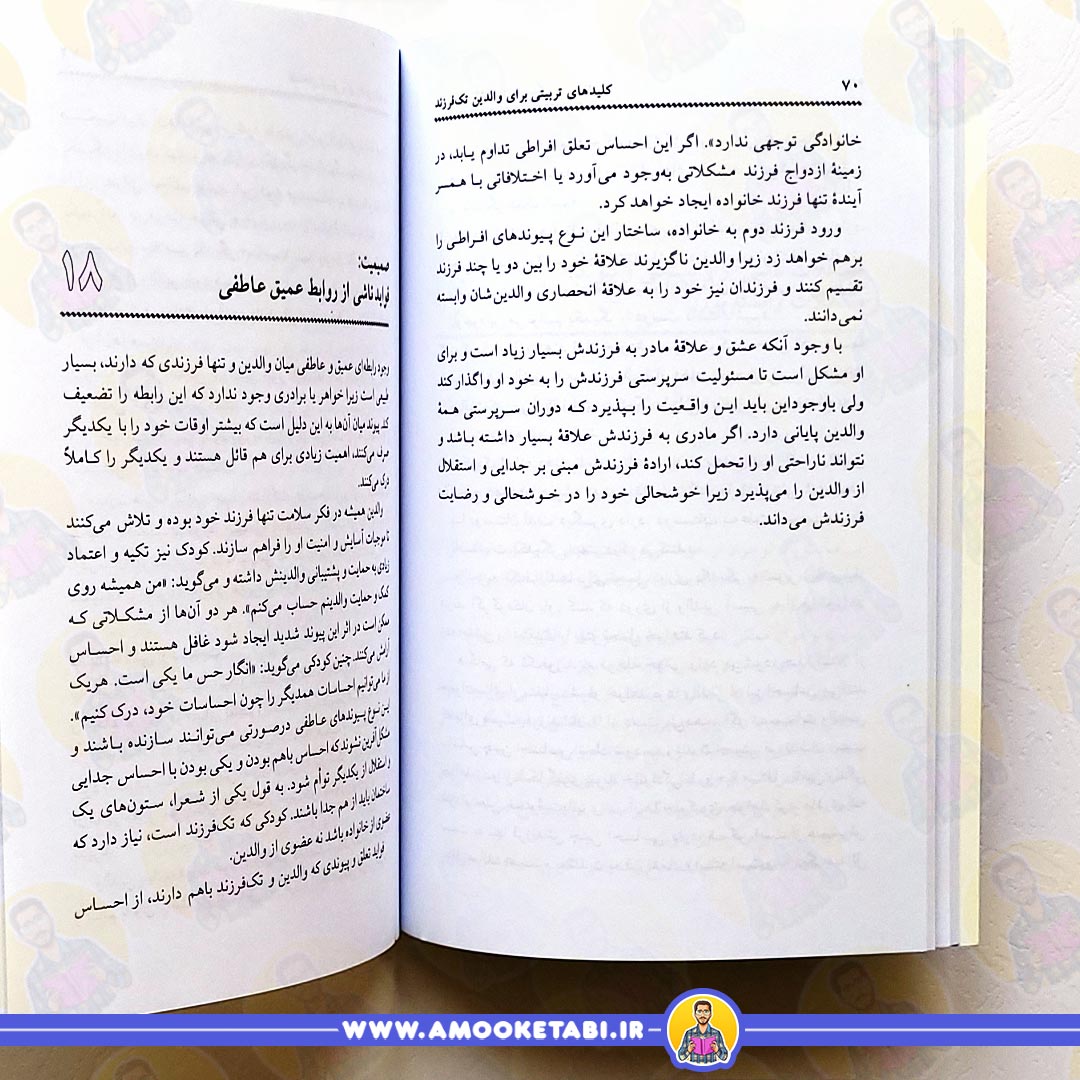 ۷۰
کلیدهای تربیتی برای والدین تک‌فرزند
خانوادگی توجهی ندارد». اگر این احساس تعلق افراطی تداوم یابد، در
زمینهٔ ازدواج فرزند مشکلاتی به‌وجود می‌آورد یا اختلافاتی با همسر
آیندهٔ تنها فرزند خانواده ایجاد خواهد کرد.
ورود فرزند دوم به خانواده، ساختار این نوع پیوندهای افراطی را
برهم خواهد زد زیرا والدین ناگزیرند علاقهٔ خود را بین دو یا چند فرزند
تقسیم کنند و فرزندان نیز خود را به علاقهٔ انحصاری والدین‌شان وابسته
نمی‌دانند.
با وجود آنکه عشق و علاقهٔ مادر به فرزندش بسیار زیاد است و برای
او مشکل است تا مسئولیت سرپرستی فرزندش را به خود او واگذار کند
ولی باوجوداین باید این واقعیت را بپذیرد که دوران سرپرستی همهٔ
والدین پایانی دارد. اگر مادری به فرزندش علاقهٔ بسیار داشته باشد و
نتواند ناراحتی او را تحمل کند، ارادهٔ فرزندش مبنی بر جدایی و استقلال
از والدین را می‌پذیرد زیرا خوشحالی خود را در خوشحالی و رضایت
فرزندش می‌داند.
۱۸
صمیمیت:
فوایدناشی از روابط عمیق عاطفی
وجود رابطه‌ای عمیق و عاطفی میان والدین و تنها فرزندی که دارند، بسیار
طبیعی است زیرا خواهر یا برادری وجود ندارد که این رابطه را تضعیف
کند. پیوند میان آن‌ها به این دلیل است که بیشتر اوقات خود را با یکدیگر
صرف می‌کنند، اهمیت زیادی برای هم قائل هستند و یکدیگر را کاملاً
درک می‌کنند.
والدین همیشه در فکر سلامت تنها فرزند خود بوده و تلاش می‌کنند
تا موجبات آسایش و امنیت او را فراهم سازند. کودک نیز تکیه و اعتماد
زیادی به حمایت و پشتیبانی والدینش داشته و می‌گوید: «من همیشه روی
کمک و حمایت والدینم حساب می‌کنم». هر دو آن‌ها از مشکلاتی که
ممکن است در اثر این پیوند شدید ایجاد شود غافل هستند و احساس
آرامش می‌کنند. چنین کودکی می‌گوید: «انگار حس ما یکی است. هریک
از ما می‌توانیم احساسات همدیگر را چون احساسات خود، درک کنیم».
این نوع پیوندهای عاطفی درصورتی می‌توانند سازنده باشند و
مشکل‌آفرین نشوند که احساس باهم بودن و یکی بودن با احساس جدایی
و استقلال از یکدیگر توأم شود. به قول یکی از شعرا، ستون‌های یک
ساختمان باید از هم جدا باشند. کودکی که تک‌فرزند است، نیاز دارد که
عضوی از خانواده باشد نه عضوی از والدین.
فواید تعلق و پیوندی که والدین و تک‌فرزند باهم دارند، از احساس
WWW.AMOOKETABI.IR